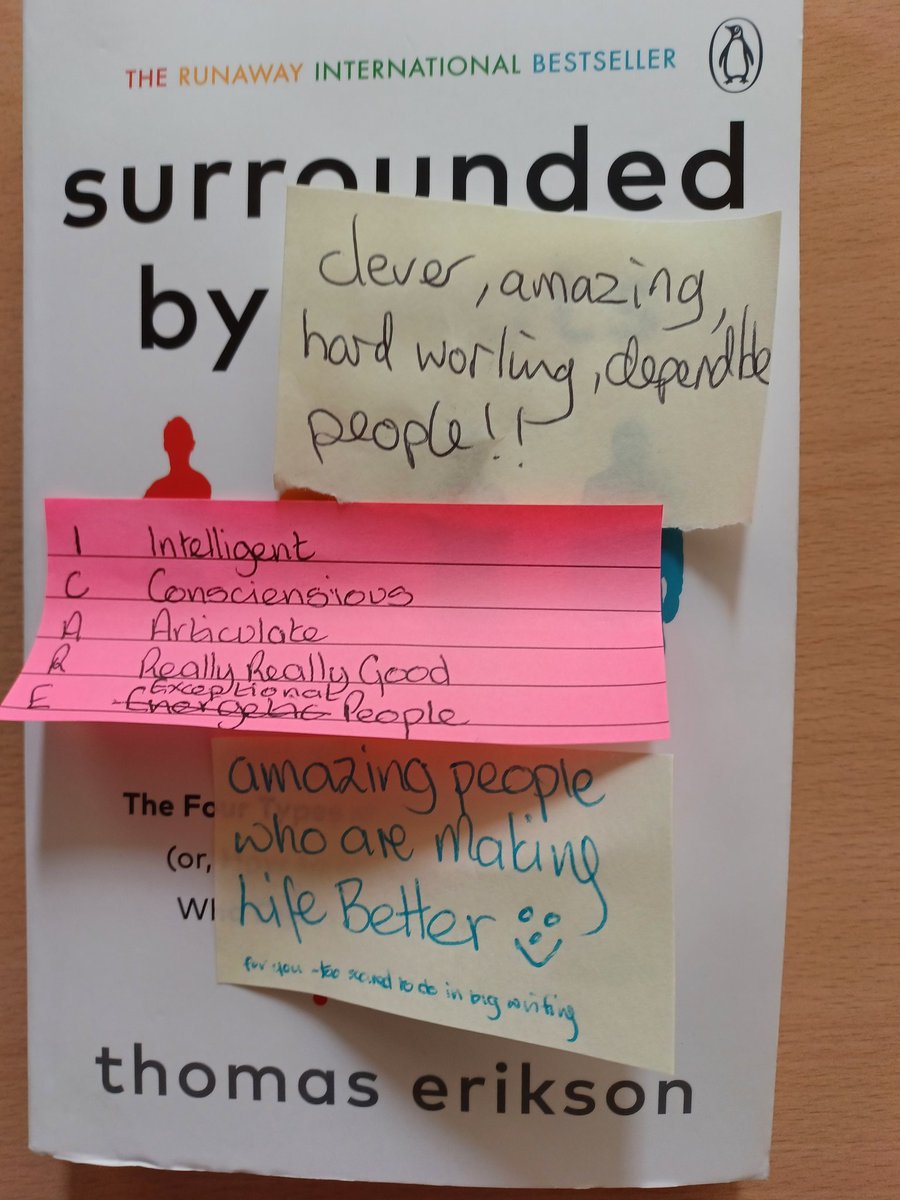 THE RUNAWAY INTERNATIONAL BESTSELLER
surrounded
by
clever, amazing,
hard working, dependble
people!!
I Intelligent
C Consciensious
A Articulate
R Really Really Good
Exceptional
E Energetic People
The Four Types
(or,
amazing people
who are making
Life Better
for you - too scared to do in big writing
thomas erikson